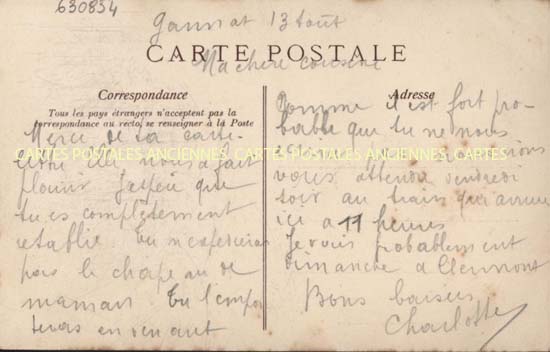 630834
Gannat 13 Août
CARTE POSTALE
Ma chère cousine
Correspondance
Tous les pays étrangers n'acceptent pas la
correspondance au recto, se renseigner à la Poste
Merci de ta carte
elle nous a fait
plaisir J'espère que
tu es complètement
rétablie. Tu n'
pas le chapeau de
maman tu l'empor
teras en venant
Adresse
Comme il est fort pro-
bable que tu ne nous
vous attends vendredi
soir au train qui arrive
ici à 11 heures
Je vais probablement
dimanche à Clermont
Bons baisers
Charlotte
CARTES POSTALES ANCIENNES CARTES POSTALES ANCIENNES CARTES